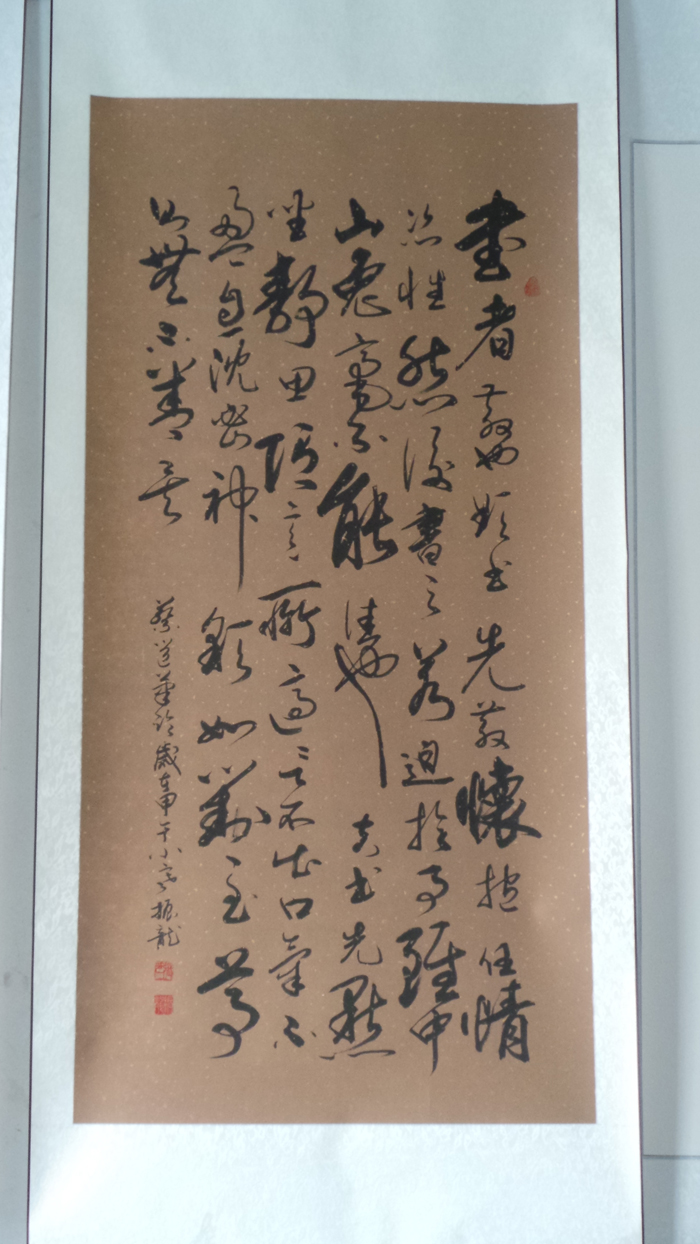 書者散也欲书先散懷抱任情
恣性然後書之若迫於事雖中
山兔毫不能佳也夫书先默
坐靜思随意所適言不出口氣不
盈息沈密神彩如對至尊
则無不善矣
蔡邕筆论歲在甲午小寒振龍